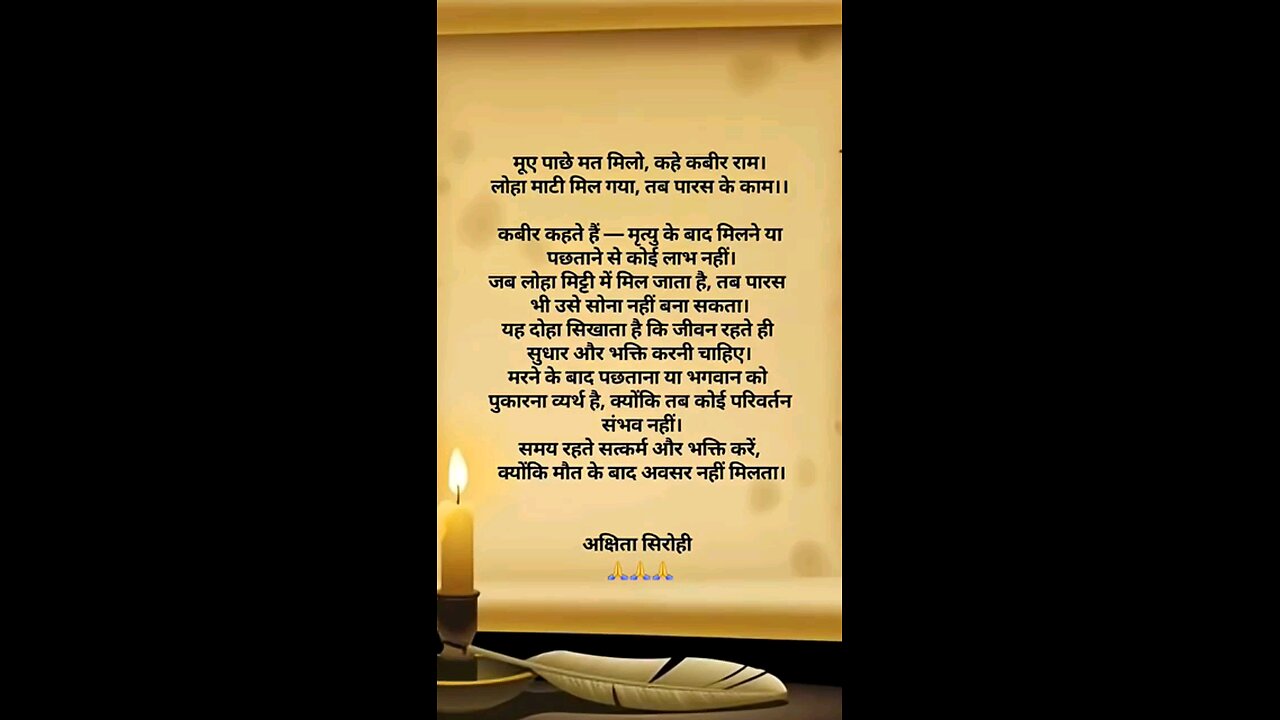 मूए पाछे मत मिलो, कहे कबीर राम।
लोहा माटी मिल गया, तब पारस के काम।।
कबीर कहते हैं — मृत्यु के बाद मिलने या
पछताने से कोई लाभ नहीं।
जब लोहा मिट्टी में मिल जाता है, तब पारस
भी उसे सोना नहीं बना सकता।
यह दोहा सिखाता है कि जीवन रहते ही
सुधार और भक्ति करनी चाहिए।
मरने के बाद पछताना या भगवान को
पुकारना व्यर्थ है, क्योंकि तब कोई परिवर्तन
संभव नहीं।
समय रहते सत्कर्म और भक्ति करें,
क्योंकि मौत के बाद अवसर नहीं मिलता।
अक्षिता सिरोही
🙏🙏🙏